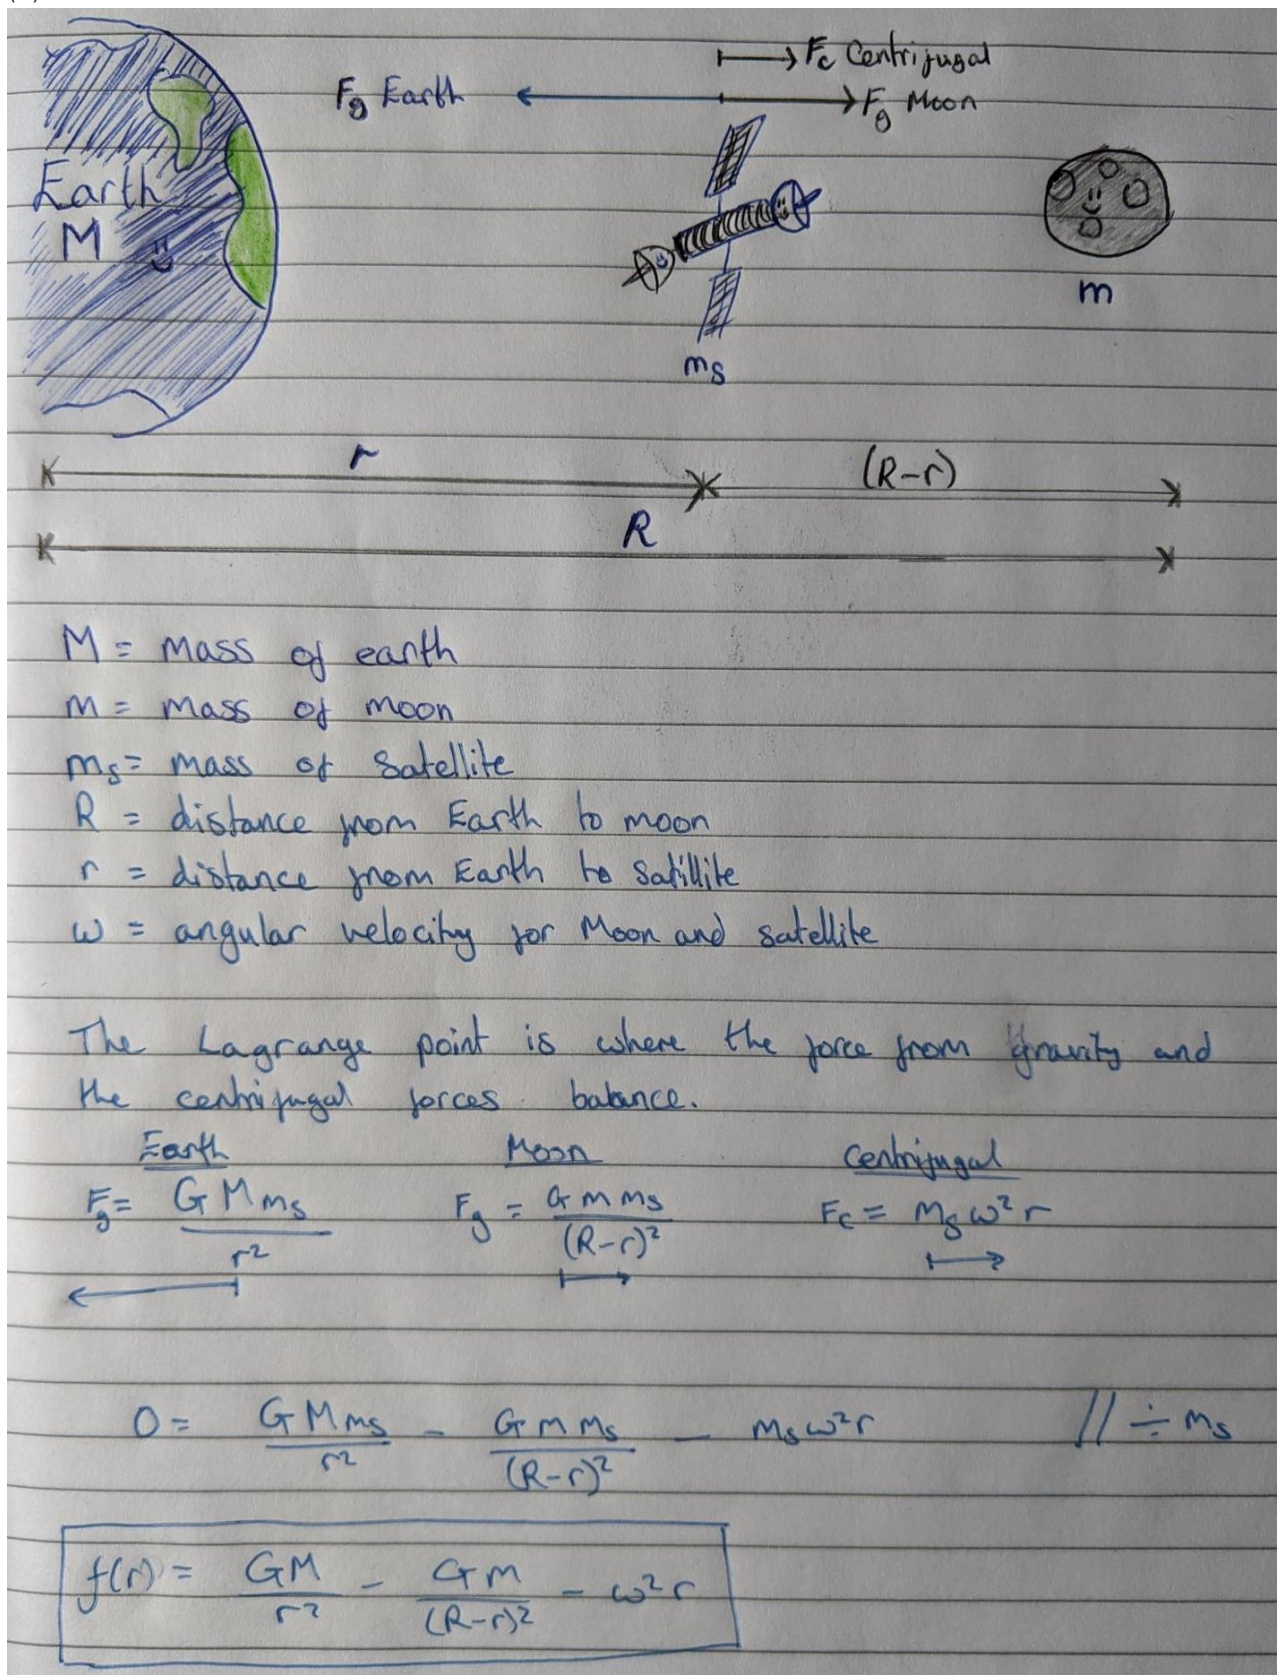 Fc Centrifugal
Fg Earth
Fg Moon
Earth
M
m
ms
r
(R-r)
R
M = mass of earth
m = mass of moon
ms = mass of Satellite
R = distance from Earth to moon
r = distance from Earth to Satillite
ω = angular velocity for Moon and satellite
The Lagrange point is where the force from gravity and
the centrifugal forces balance.
Earth Moon Centrifugal
Fg = GMms/r² Fg = Gmms/(R-r)² Fc = msω²r
0 = GMms/r² - Gmms/(R-r)² - msω²r // ÷ ms
f(r) = GM/r² - Gm/(R-r)² - ω²r